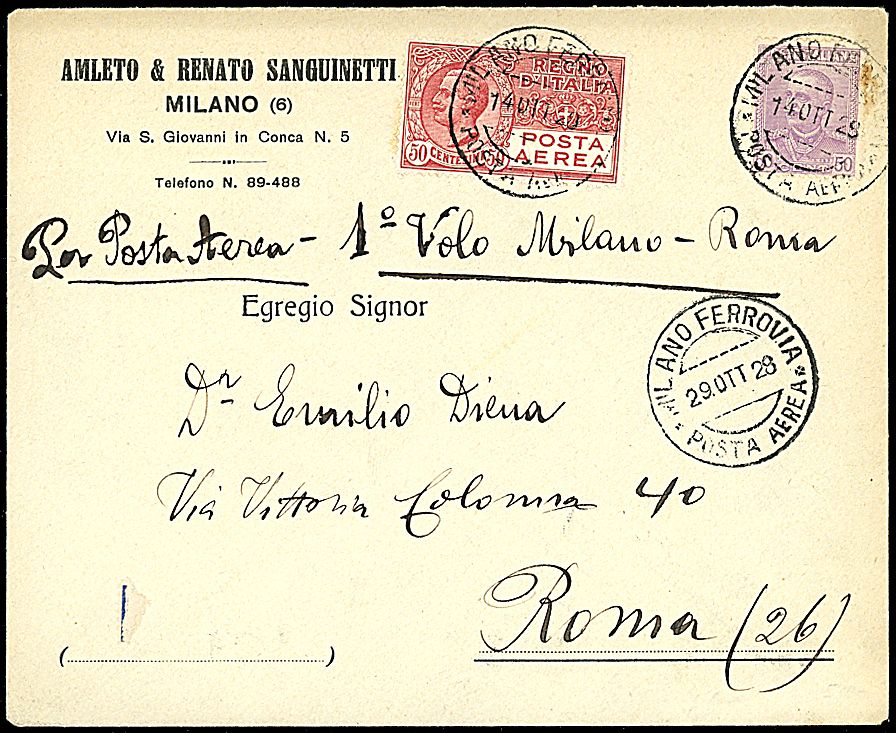 AMLETO & RENATO SANGUINETTI
MILANO (6)
Via S. Giovanni in Conca N. 5
Telefono N. 89-488
REGNO
D'ITALIA
POSTA
AEREA
50 CENTESIMI 50
MILANO
14 OTT 28
POSTA
MILANO
14 OTT 28
POSTA AEREA
50
Per Posta Aerea - 1º Volo Milano - Roma
Egregio Signor
MILANO FERROVIA
29 OTT 28
* POSTA AEREA *
Dr Emilio Diena
Via Vittoria Colonna 40
Roma (26)
(..............................)